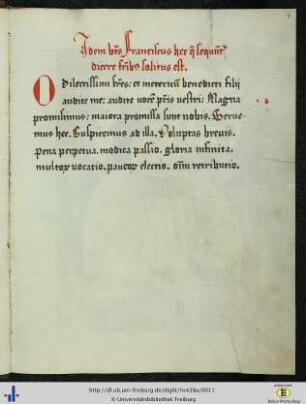 Idem btũs Franciscus hec q̃ sequunt᷑
dicere fr̃ibꝰ solitus est.
O Dilectissimi fr̃es: et in eternũ benedicti filij
audite me: audite vocẽ pr̃is vestri: Magna
promisimus: maiora promissa sunt nobis. Serue-
mus hec. Suspiremus ad illa. Voluptas breuis.
Pena perpetua. modica passio. gloria infinita.
multoꝝ vocatio. paucoꝝ electio. oĩm retributio.
http://dl.ub.uni-freiburg.de/diglit/hs430a/0011
© Universitätsbibliothek Freiburg